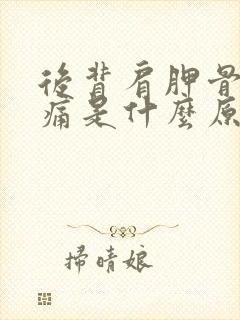 後背肩胛骨
痛是什麼原
掃晴娘